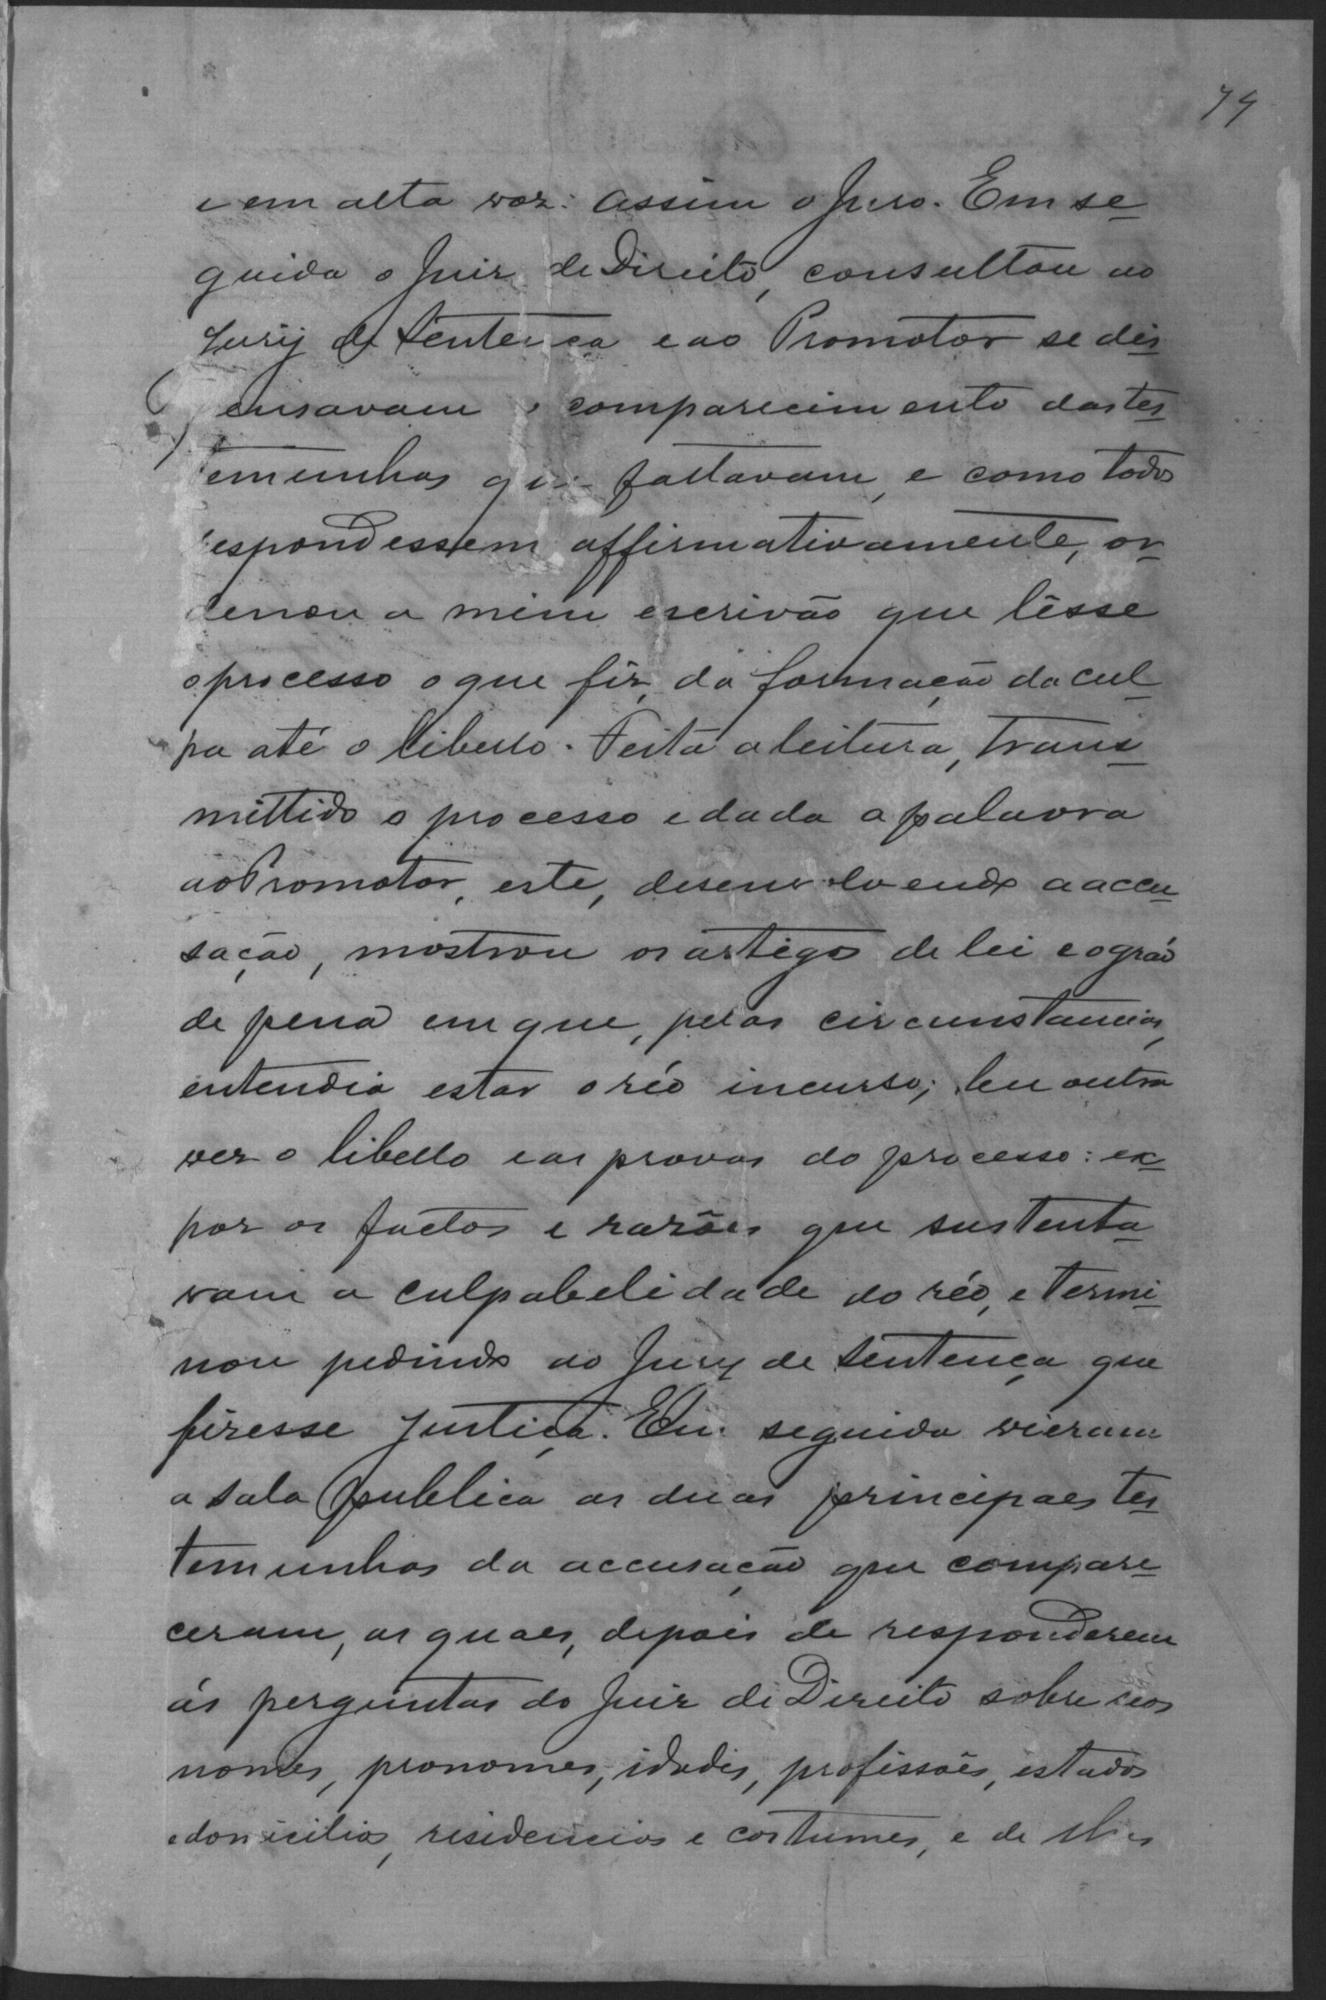 79
e em alta voz: assim o Juro. Em se-
guida o Juiz de Direito, consultou ao
Jury de Sentença e ao Promotor se dis-
pensavam o comparecimento das tes-
temunhas que faltavam, e como todos
respondessem affirmativamente, or-
denou a mim escrivão que lêsse
o processo o que fiz, da formação da cul-
pa até o libello. Feita a leitura, trans-
mittido o processo e dada a palavra
ao Promotor, este, desenvolvendo a accu-
sação, mostrou os artigos de lei e o gráo
de pena em que, pelas circunstancias,
entendia estar o réo incurso; leu outra
vez o libello e as provas do processo: ex-
por os factos e razões que sustenta-
vam a culpabelidade do réo, e termi-
nou pedindo ao Jury de Sentença que
fizesse justiça. Em seguida vieram
a sala publica as duas principaes tes-
temunhas da accusação que compare-
ceram, as quaes, depois de responderem
ás perguntas do Juiz de Direito sobre seos
nomes, pronomes, idades, profissões, estados
e domicilios, residencias e costumes, e de